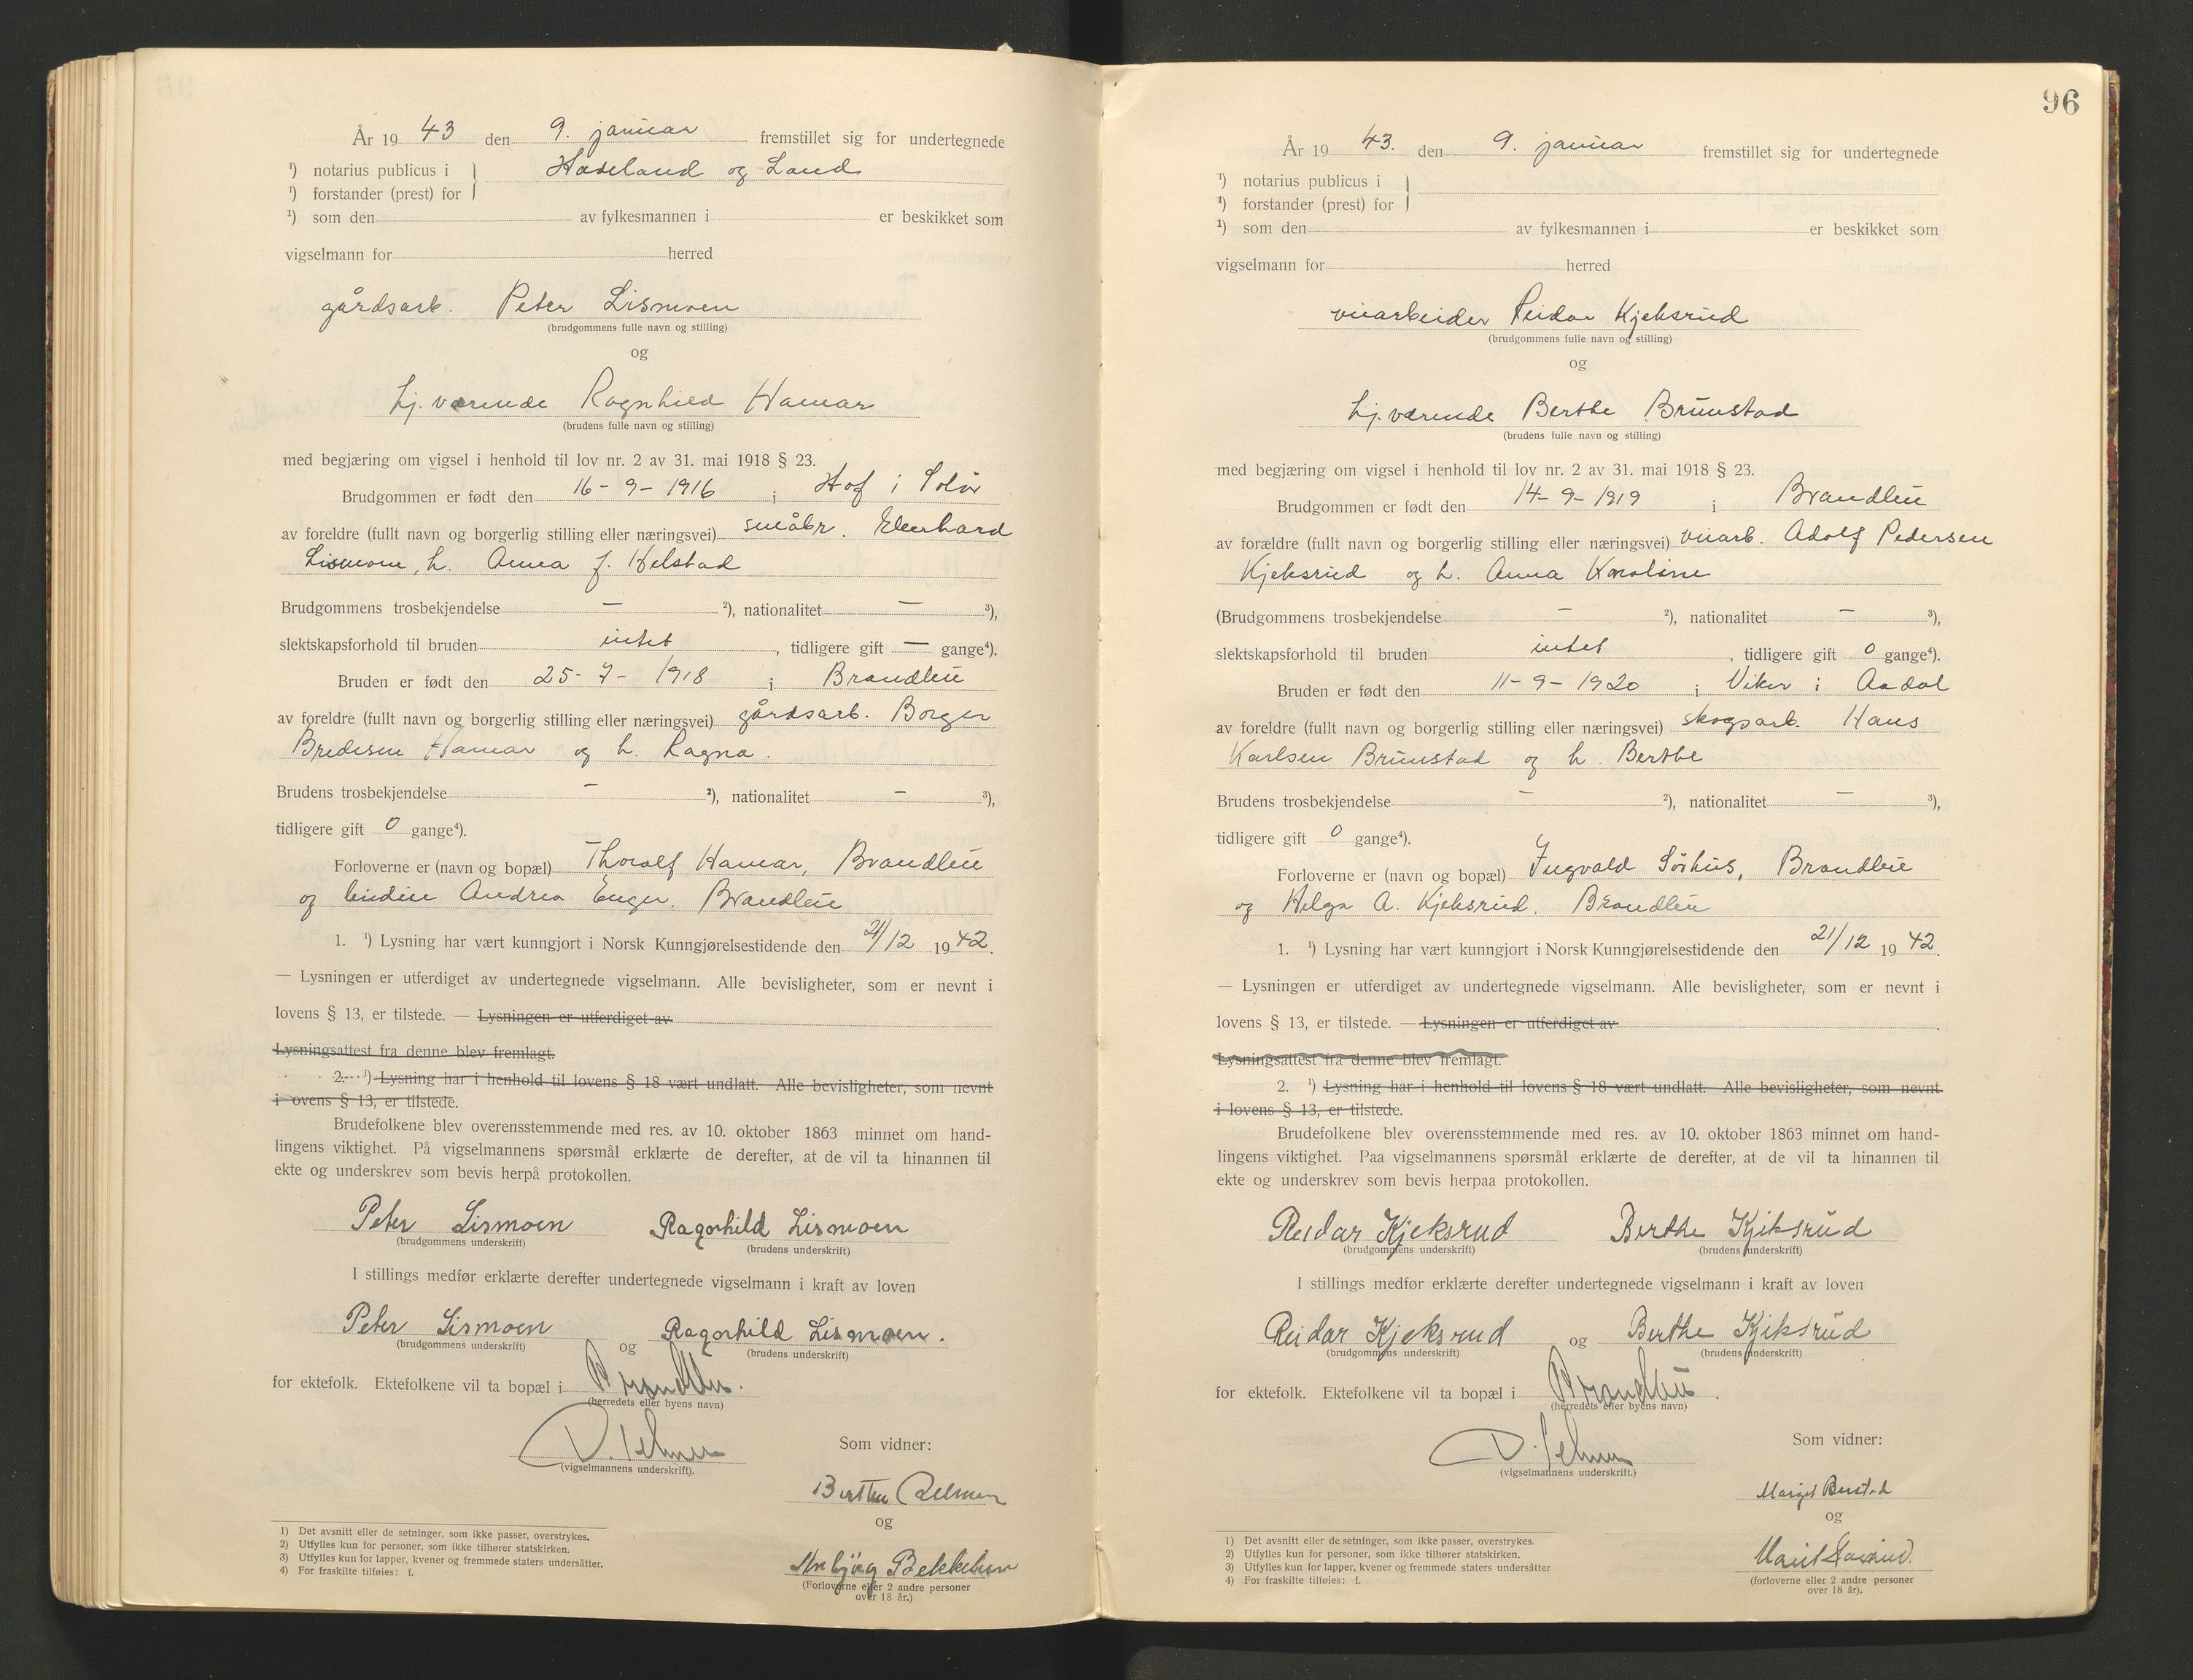 År 19 43 den 9. januar fremstillet sig for undertegnede
¹) notarius publicus i } Hadeland og Land
¹) forstander (prest) for
¹) som den av fylkesmannen i er beskikket som
vigselmann for herred
gårdsarb. Peter Lismoen
(brudgommens fulle navn og stilling)
og
hj. værende Ragnhild Hamar
(brudens fulle navn og stilling)
med begjæring om vigsel i henhold til lov nr. 2 av 31. mai 1918 § 23.
Brudgommen er født den 16-9-1916 i Hof i Solør
av foreldre (fullt navn og borgerlig stilling eller næringsvei) småbr. Eberhard
Lismoen, h. Anna f. Helstad
Brudgommens trosbekjendelse — ²), nationalitet — ³),
slektskapsforhold til bruden intet, tidligere gift — gange⁴).
Bruden er født den 25-7-1918 i Brandbu
av foreldre (fullt navn og borgerlig stilling eller næringsvei) gårdsarb. Borger
Bredesen Hamar og h. Ragna.
Brudens trosbekjendelse — ²), nationalitet — ³),
tidligere gift 0 gange⁴).
Forloverne er (navn og bopæl) Thoralf Hamar, Brandbu
og Andrea Enger, Brandbu
1. ¹) Lysning har vært kunngjort i Norsk Kunngjørelsestidende den 21/12 1942.
— Lysningen er utferdiget av undertegnede vigselmann. Alle bevisligheter, som er nevnt i
lovens § 13, er tilstede. — Lysningen er utferdiget av
Lysningsattest fra denne blev fremlagt.
2. ¹) Lysning har i henhold til lovens § 18 vært undlatt. Alle bevisligheter, som nevnt
i ovens § 13, er tilstede.
Brudefolkene blev overensstemmende med res. av 10. oktober 1863 minnet om hand-
lingens viktighet. På vigselmannens spørsmål erklærte de derefter, at de vil ta hinannen til
ekte og underskrev som bevis herpå protokollen.
Peter Lismoen Ragnhild Lismoen
(brudgommens underskrift) (brudens underskrift)
I stillings medfør erklærte derefter undertegnede vigselmann i kraft av loven
Peter Lismoen og Ragnhild Lismoen.
(brudgommens underskrift) (brudens underskrift)
for ektefolk. Ektefolkene vil ta bopæl i Brandbu.
(herredets eller byens navn)
(vigselmannens underskrift).
Som vidner:
og
Bekkelien
(Forloverne eller 2 andre personer
over 18 år.)
1) Det avsnitt eller de setninger, som ikke passer, overstrykes.
2) Utfylles kun for personer, som ikke tilhører statskirken.
3) Utfylles kun for lapper, kvener og fremmede staters undersåtter.
4) For fraskilte tilføies: f.
96
År 19 43. den 9. januar fremstillet sig for undertegnede
¹) notarius publicus i }
¹) forstander (prest) for
¹) som den av fylkesmannen i er beskikket som
vigselmann for herred
veiarbeider Reidar Kjeksrud
(brudgommens fulle navn og stilling)
og
hj. værende Berthe Brunstad
(brudens fulle navn og stilling)
med begjæring om vigsel i henhold til lov nr. 2 av 31. mai 1918 § 23.
Brudgommen er født den 14-9-1919 i Brandbu
av forældre (fullt navn og borgerlig stilling eller næringsvei) veiarb. Adolf Pedersen
Kjeksrud og h. Anna Karoline
(Brudgommens trosbekjendelse — ²), nationalitet — ³),
slektskapsforhold til bruden intet, tidligere gift 0 gange⁴).
Bruden er født den 11-9-1920 i Viker i Aadal
av foreldre (fullt navn og borgerlig stilling eller næringsvei) skogsarb. Hans
Karlsen Brunstad og h. Berthe
Brudens trosbekjendelse — ²), nationalitet — ³),
tidligere gift 0 gange⁴).
Forloverne er (navn og bopæl) Ingvald Sørhus, Brandbu
og Helga A. Kjeksrud, Brandbu
1. ¹) Lysning har vært kunngjort i Norsk Kunngjørelsestidende den 21/12 1942.
— Lysningen er utferdiget av undertegnede vigselmann. Alle bevisligheter, som er nevnt i
lovens § 13, er tilstede. — Lysningen er utferdiget av
Lysningsattest fra denne blev fremlagt.
2. ¹) Lysning har i henhold til lovens § 18 vært undlatt. Alle bevisligheter, som nevnt
i lovens § 13, er tilstede.
Brudefolkene blev overensstemmende med res. av 10. oktober 1863 minnet om hand-
lingens viktighet. Paa vigselmannens spørsmål erklærte de derefter, at de vil ta hinannen til
ekte og underskrev som bevis herpaa protokollen.
Reidar Kjeksrud Berthe Kjeksrud
(brudgommens underskrift) (brudens underskrift)
I stillings medfør erklærte derefter undertegnede vigselmann i kraft av loven
Reidar Kjeksrud og Berthe Kjeksrud
(brudgommens underskrift) (brudens underskrift)
for ektefolk. Ektefolkene vil ta bopæl i Brandbu.
(herredets eller byens navn)
(vigselmannens underskrift.)
Som vidner:
Margit
og
(forloverne eller 2 andre personer
over 18 år).
1) Det avsnitt eller de setninger, som ikke passer, overstrykes.
2) Utfylles kun for personer, som ikke tilhører statskirken.
3) Utfylles kun for lapper, kvener og fremmede staters undersåtter
4) For fraskilte tilføies: f.